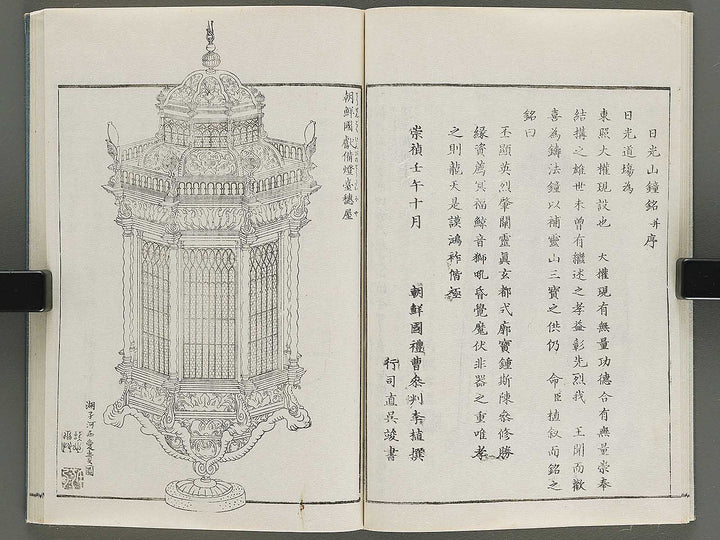 日光山鐘銘并序
日光道場為
東照大權現設也　大權現有無量功德合有無量崇奉
結搆之雄世未曾有繼述之孝益彰先烈我　王聞而歡
喜為鑄法鐘以補靈山三寶之供仍　命臣植叙而銘之
銘曰
丕顯英烈肇闡靈真玄都式廓寶鍾斯陳參修勝
緣資薦冥福鯨音獅吼昏覺魔伏非器之重唯孝
之則龍天是護鴻祚偕極
崇禎壬午十月　朝鮮國禮曹參判李植撰
行司直吳竣書
朝鮮國獻備燈臺穗屋